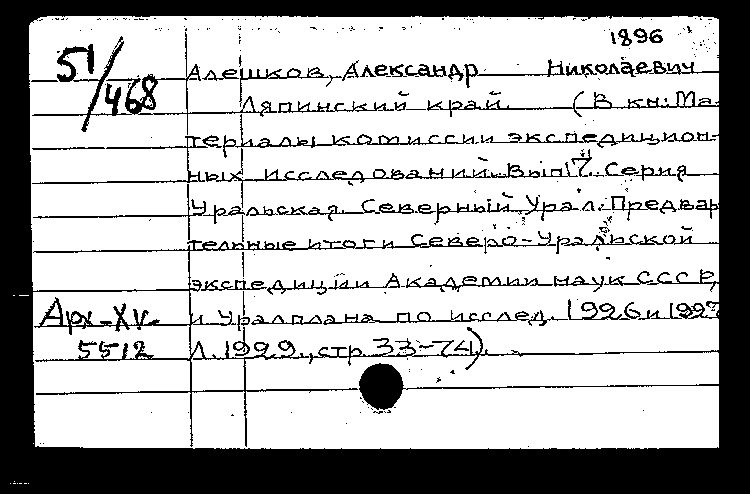 1896
51/468
Алешков, Александр Николаевич
Ляпинский край. (В кн: Ма-
териалы комиссии экспедицион-
ных исследований. Вып 17. Серия
Уральская. Северный Урал. Предвар
тельные итоги Северо-Уральской
экспедиции Академии наук СССР,
и Уралплана по исслед. 1926 и 1927
Л. 1929., стр 33-74).
Арх-XV-
5512